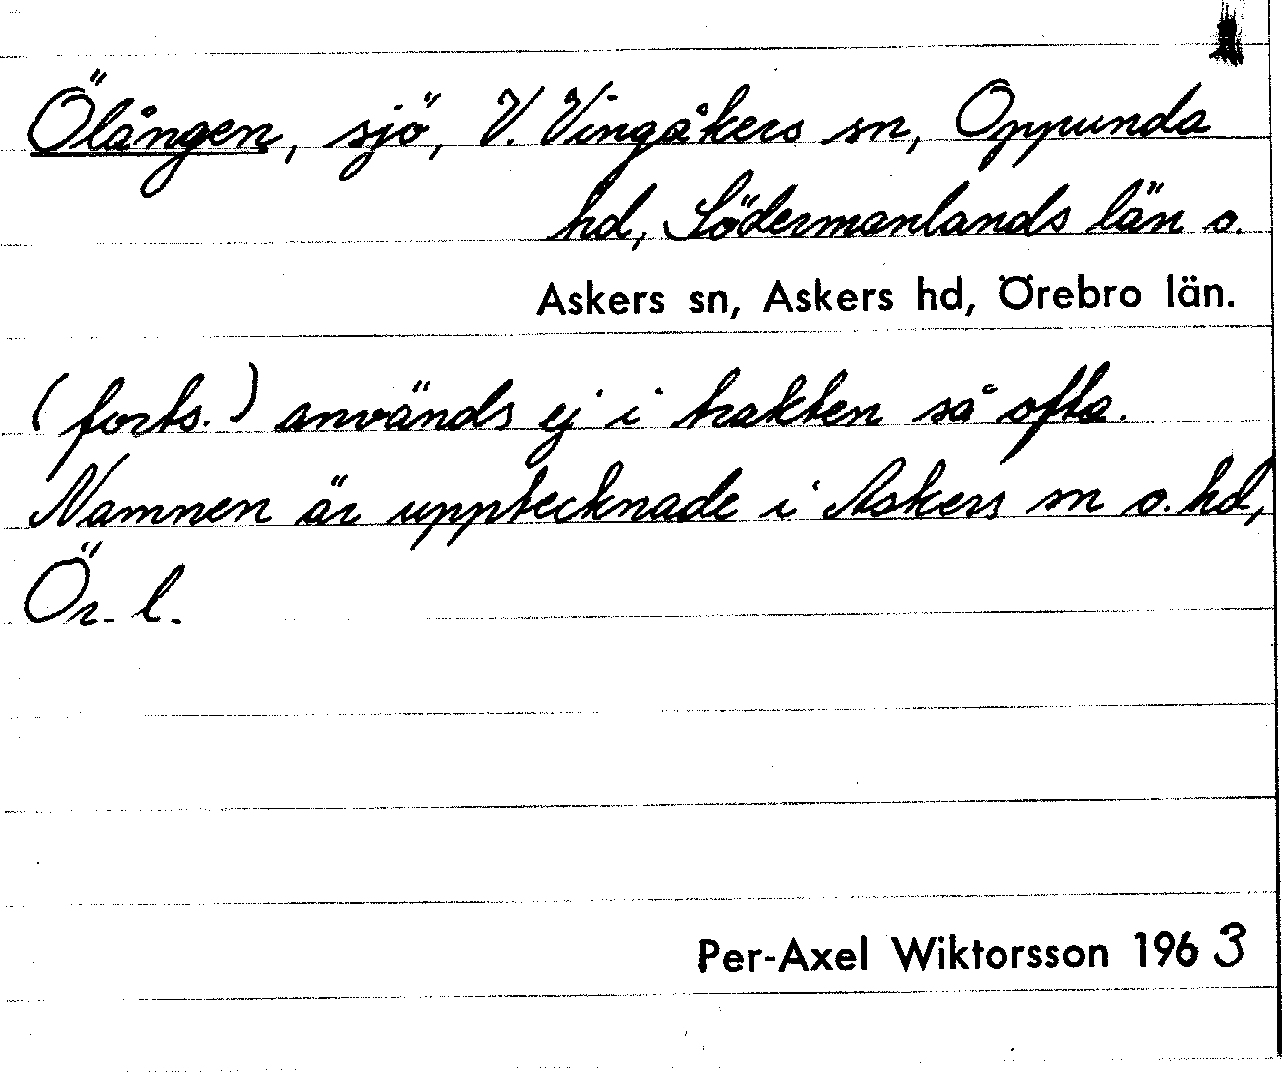 Ölången, sjö, V. Vingåkers sn, Oppunda
hd, Södermanlands län o.
Askers sn, Askers hd, Örebro län.
(forts.) används ej i trakten så ofta.
Namnen är upptecknade i Askers sn o. hd,
Ör. l.
Per-Axel Wiktorsson 1963